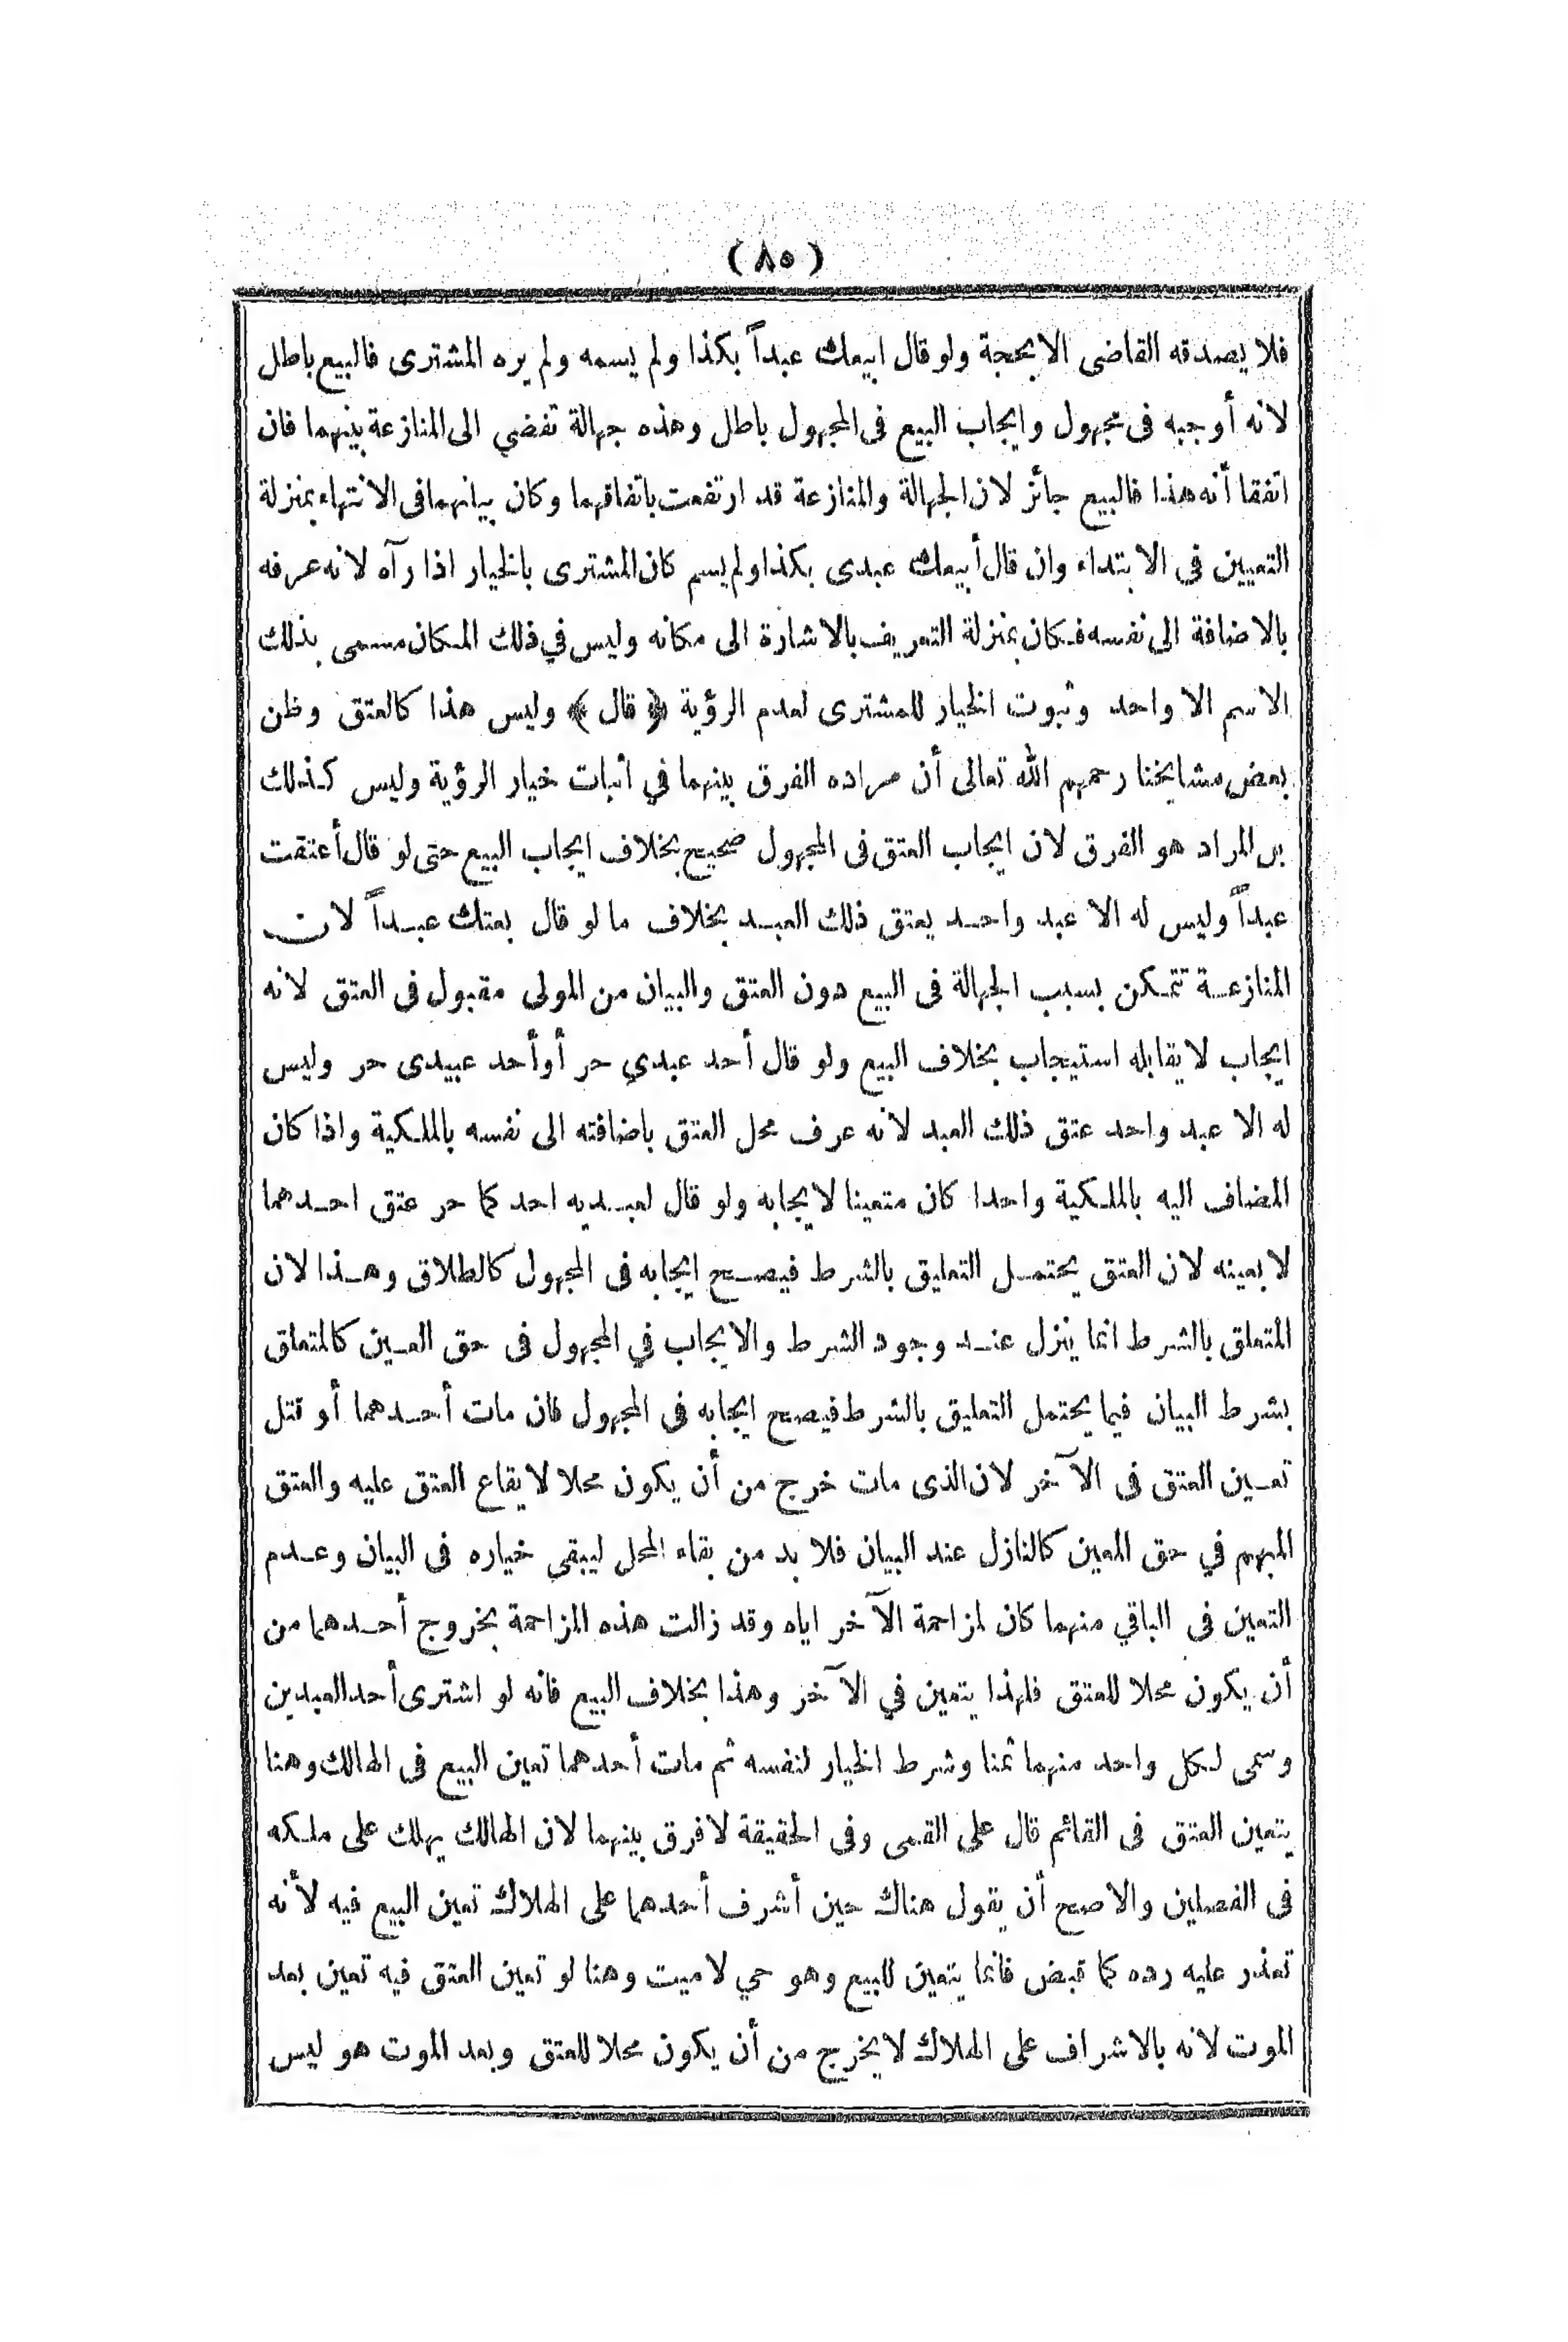 (٨٥)
فلا يصدقه القاضى الا بحجة ولو قال ابيعك عبداً بكذا ولم يسمه ولم يره المشترى فالبيع باطل
لانه أوجبه فى مجهول وايجاب البيع فى المجهول باطل وهذه جهالة تفضي الى المنازعة بينهما فان
اتفقا أنه هذا فالبيع جائز لان الجهالة والمنازعة قد ارتفعت باتفاقهما وكان بيانهما فى الانتهاء بمنزلة
التعيين في الابتداء وان قال أبيعك عبدى بكذا ولم يسم كان المشترى بالخيار اذا رآه لانه عرفه
بالاضافة الى نفسه فكان بمنزلة التعريف بالاشارة الى مكانه وليس في ذلك المكان مسمى بذلك
الاسم الا واحد وثبوت الخيار للمشترى لعدم الرؤية ﴿ قال ﴾ وليس هذا كالعتق وظن
بعض مشايخنا رحمهم الله تعالى أن مراده الفرق بينهما في اثبات خيار الرؤية وليس كذلك
بل المراد هو الفرق لان ايجاب العتق فى المجهول صحيح بخلاف ايجاب البيع حتى لو قال أعتقت
عبداً وليس له الا عبد واحد يعتق ذلك العبد بخلاف ما لو قال بعتك عبداً لان
المنازعة تتمكن بسبب الجهالة فى البيع دون العتق والبيان من المولى مقبول فى العتق لانه
ايجاب لا يقابله استيجاب بخلاف البيع ولو قال أحد عبدي حر أو أحد عبيدى حر وليس
له الا عبد واحد عتق ذلك العبد لانه عرف محل العتق باضافته الى نفسه بالملكية واذا كان
المضاف اليه بالملكية واحدا كان متعينا لايجابه ولو قال لعبديه احدكما حر عتق احدهما
لا بعينه لان العتق يحتمل التعليق بالشرط فيصح ايجابه فى المجهول كالطلاق وهذا لان
المتعلق بالشرط انما ينزل عند وجود الشرط والايجاب في المجهول فى حق العين كالمتعلق
بشرط البيان فيما يحتمل التعليق بالشرط فيصح ايجابه فى المجهول فان مات أحدهما أو قتل
تعين العتق فى الآخر لان الذى مات خرج من أن يكون محلا لايقاع العتق عليه والعتق
المبهم في حق المعين كالنازل عند البيان فلا بد من بقاء المحل ليبقى خياره فى البيان وعدم
التعين فى الباقي منهما كان لمزاحمة الآخر اياه وقد زالت هذه المزاحمة بخروج أحدهما من
أن يكون محلا للعتق فلهذا يتعين في الآخر وهذا بخلاف البيع فانه لو اشترى أحد العبدين
وسمى لكل واحد منهما ثمنا وشرط الخيار لنفسه ثم مات أحدهما تعين البيع فى الهالك وهنا
يتعين العتق فى القائم قال على القمى وفى الحقيقة لا فرق بينهما لان الهالك يهلك على ملكه
فى الفصلين والاصح أن يقول هناك حين أشرف أحدهما على الهلاك تعين البيع فيه لأنه
تعذر عليه رده كما قبض فانما يتعين للبيع وهو حي لا ميت وهنا لو تعين العتق فيه تعين بعد
الموت لانه بالاشراف على الهلاك لا يخرج من أن يكون محلا للعتق وبعد الموت هو ليس